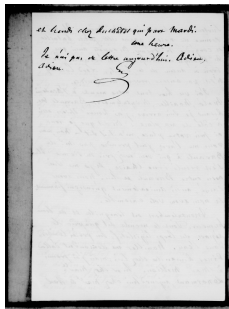 et lundi chez Duchâtel qui part mardi.
une heure.
Je n'ai pas de lettre aujourd'hui. Adieu.
Adieu.